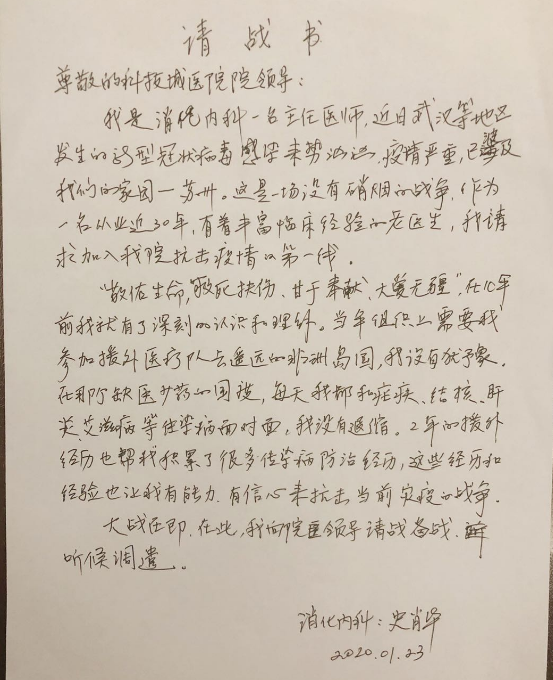 请战书
尊敬的科技城医院院领导：
我是消化内科一名主任医师，近日武汉等地区
发生的新型冠状病毒感染来势汹汹，疫情严重，已波及
我们的家园一苏州。这是一场没有硝烟的战争，作为
一名从业近30年，有着丰富临床经验的老医生，我请
求加入我院抗击疫情的第一线。
"敬佑生命，救死扶伤、甘于奉献、大爱无疆"，在10年
前我就有了深刻的认识和理解。当年组织上需要我
参加援外医疗队去遥远的非洲岛国，我没有犹豫。
在那个缺医少药的国度，每天我都和疟疾、结核、肝
炎、艾滋病等传染病面对面，我没有退缩。2年的援外
经历也帮我积累了很多传染病防治经历，这些经历和
经验也让我有能力、有信心来抗击当前灾疫的战争。
大战在即，在此，我向院领导请战备战，
听候调遣。
消化内科：史肖华
2020.01.23